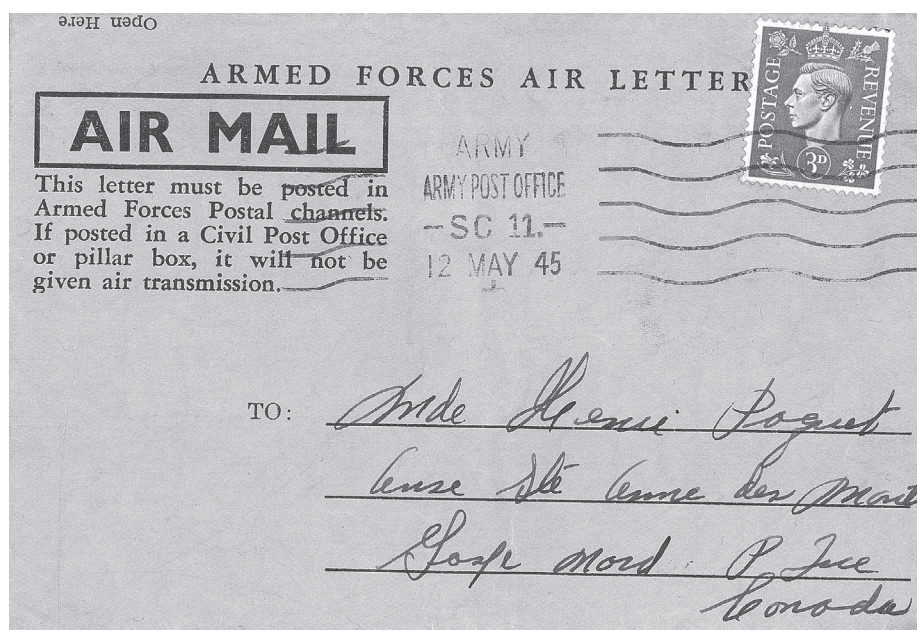 Open Here
ARMED FORCES AIR LETTER
POSTAGE REVENUE
3D
AIR MAIL
This letter must be posted in
Armed Forces Postal channels.
If posted in a Civil Post Office
or pillar box, it will not be
given air transmission.
ARMY
ARMY POST OFFICE
-SC 11.-
12 MAY 45
TO: Mde Henri Paquet
Anse Ste Anne des Mont
Gaspe Nord. P Que
Canada